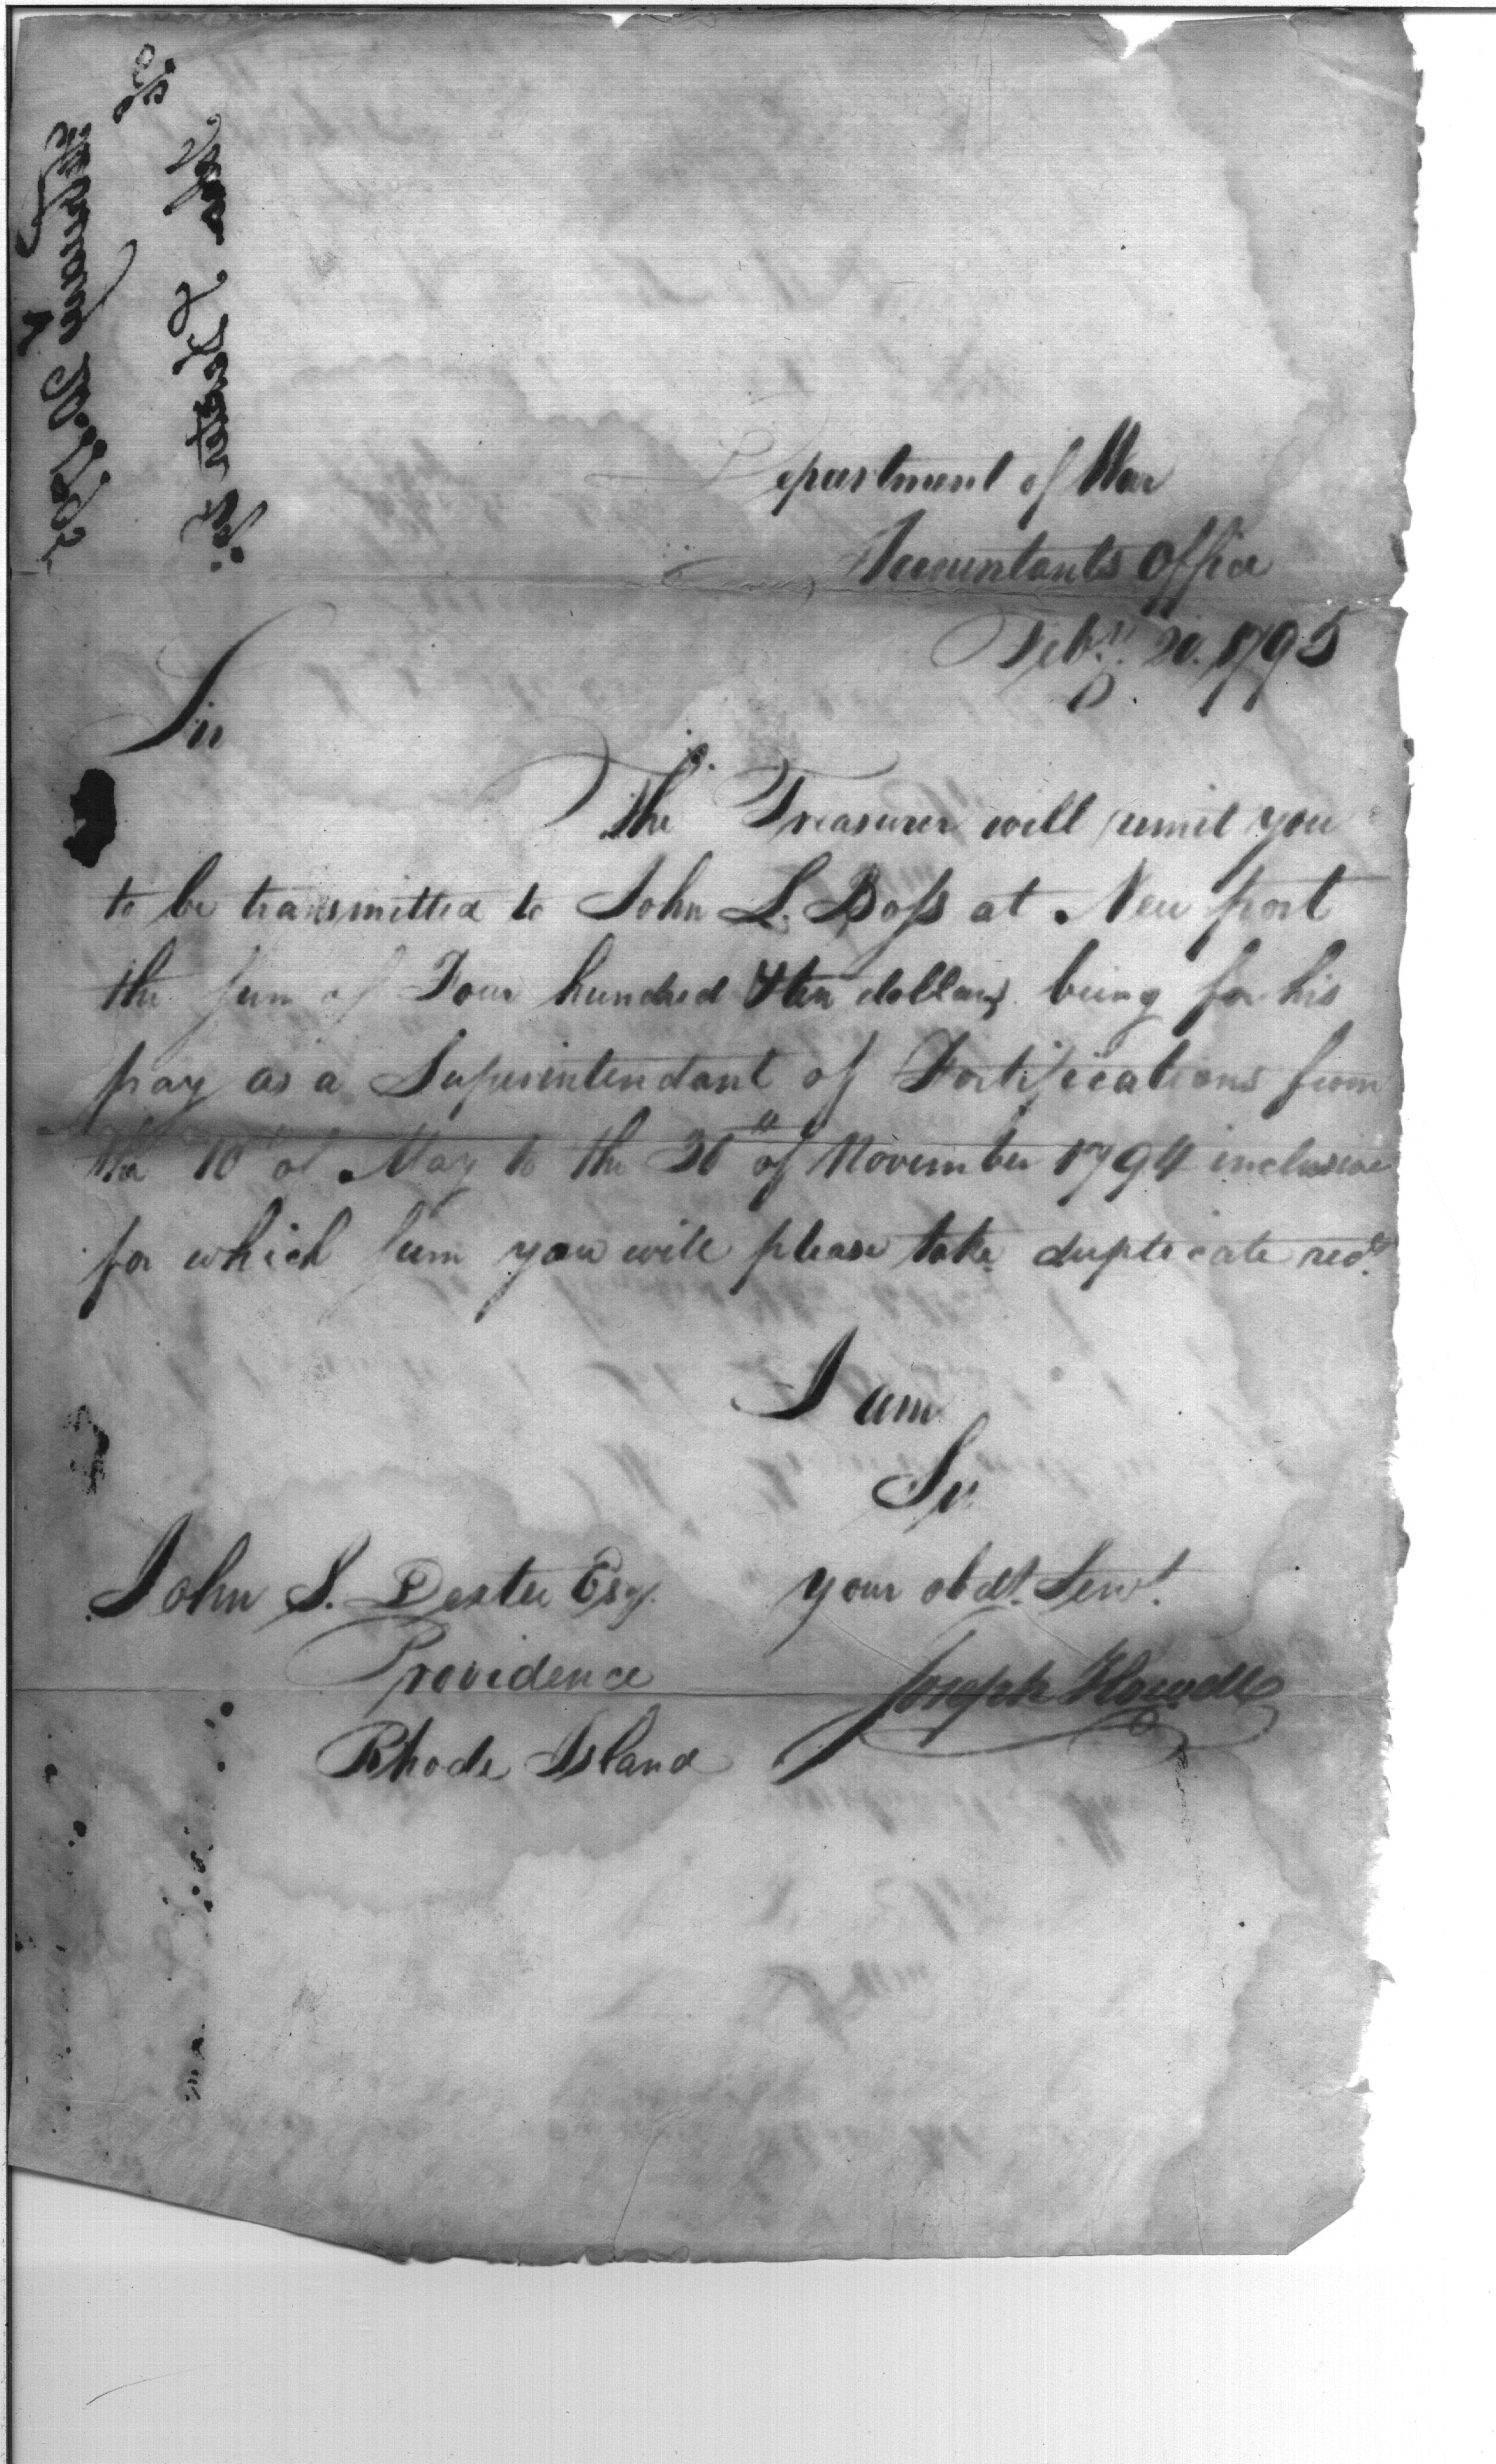 Department of War
Accountants Office
Feby. 20. 1795
Sir
The Treasurer will remit you
to be transmitted to John L. Boss at New port
the sum of Four hundred & ten dollars being for his
pay as a Superintendant of Fortifications from
the 10th of May to the 30th of November 1794 inclusive
for which sum you will please take duplicate rects.
I am
Sir
your obdt. Servt.
Joseph Howell
John S. Dexter Esq.
Providence
Rhode Island